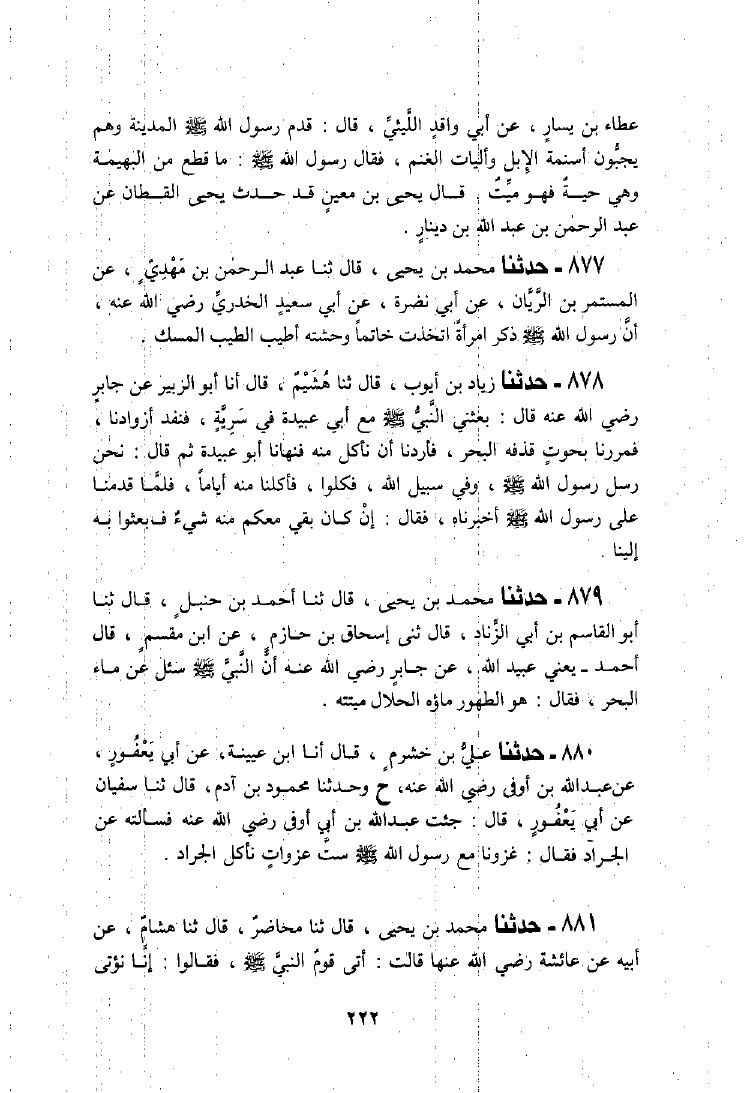 عطاء بن يسارٍ ، عن أبي واقدٍ اللَّيثيِّ ، قال : قدم رسول الله ﷺ المدينة وهم
يجبُّون أسنمة الإبل وأليات الغنم ، فقال رسول الله ﷺ : ما قطع من البهيمة
وهي حيةٌ فهو ميِّتٌ . قـال يحيى بن معينٍ قـد حـدث يحيى القـطان عن
عبد الرحمٰن بن عبد الله بن دينارٍ .
٨٧٧ ـ حدثنا محمد بن يحيى ، قال ثنـا عبد الـرحمٰن بن مَهْديٍّ ، عن
المستمر بن الرَّيَّان ، عن أبي نضرة ، عن أبي سعيدٍ الخدريِّ رضي الله عنه ،
أنَّ رسول الله ﷺ ذكر امرأةً اتخذت خاتماً وحشته أطيب الطيب المسك .
٨٧٨ ـ حدثنا زياد بن أيوب ، قال ثنا هُشَيْمٌ ، قال أنا أبو الزبير عن جابرٍ
رضي الله عنه قال : بعثني النَّبيُّ ﷺ مع أبي عبيدة في سَرِيَّةٍ ، فنفد أزوادنا ،
فمررنا بحوتٍ قذفه البحر ، فأردنا أن نأكل منه فنهانا أبو عبيدة ثم قال : نحن
رسل رسول الله ﷺ ، وفي سبيل الله ، فكلوا ، فأكلنا منه أياماً ، فلمَّـا قدمنـا
على رسول الله ﷺ أخبرناه ، فقال : إنْ كـان بقي معكم منه شيءٌ فـابعثوا بـه
إلينا .
٨٧٩ ـ حدثنا محمـد بن يحيى ، قال ثنـا أحمـد بن حنبـلٍ ، قـال ثنـا
أبو القاسم بن أبي الزِّناد ، قال ثنى إسحاق بن حازمٍ ، عن ابن مقسمٍ ، قال
أحمـد ـ يعني عبيد الله ، عن جـابرٍ رضي الله عنـه أنَّ النَّبيَّ ﷺ سئل عن مـاء
البحر ، فقال : هو الطهور ماؤه الحلال ميتته .
٨٨٠ ـ حدثنا عليُّ بن خشرمٍ ، قـال أنـا ابن عيينة، عن أبي يَعْفُـورٍ ،
عن عبـدالله بن أوفى رضي الله عنه، ح وحـدثنا محمود بن آدم، قال ثنـا سفيان
عن أبي يَعْفُـورٍ ، قال : جئت عبـدالله بن أبي أوفى رضي الله عنه فسـألته عن
الجـراد فقـال : غزونا مع رسول الله ﷺ ستَّ عزواتٍ نأكل الجراد .
٨٨١ ـ حدثنا محمد بن يحيى ، قال ثنا محاضرٌ ، قال ثنا هشامٌ ، عن
أبيه عن عائشة رضي الله عنها قالت : أتى قومٌ النبيَّ ﷺ ، فقـالوا : إنَّـا نؤتى
٢٢٢